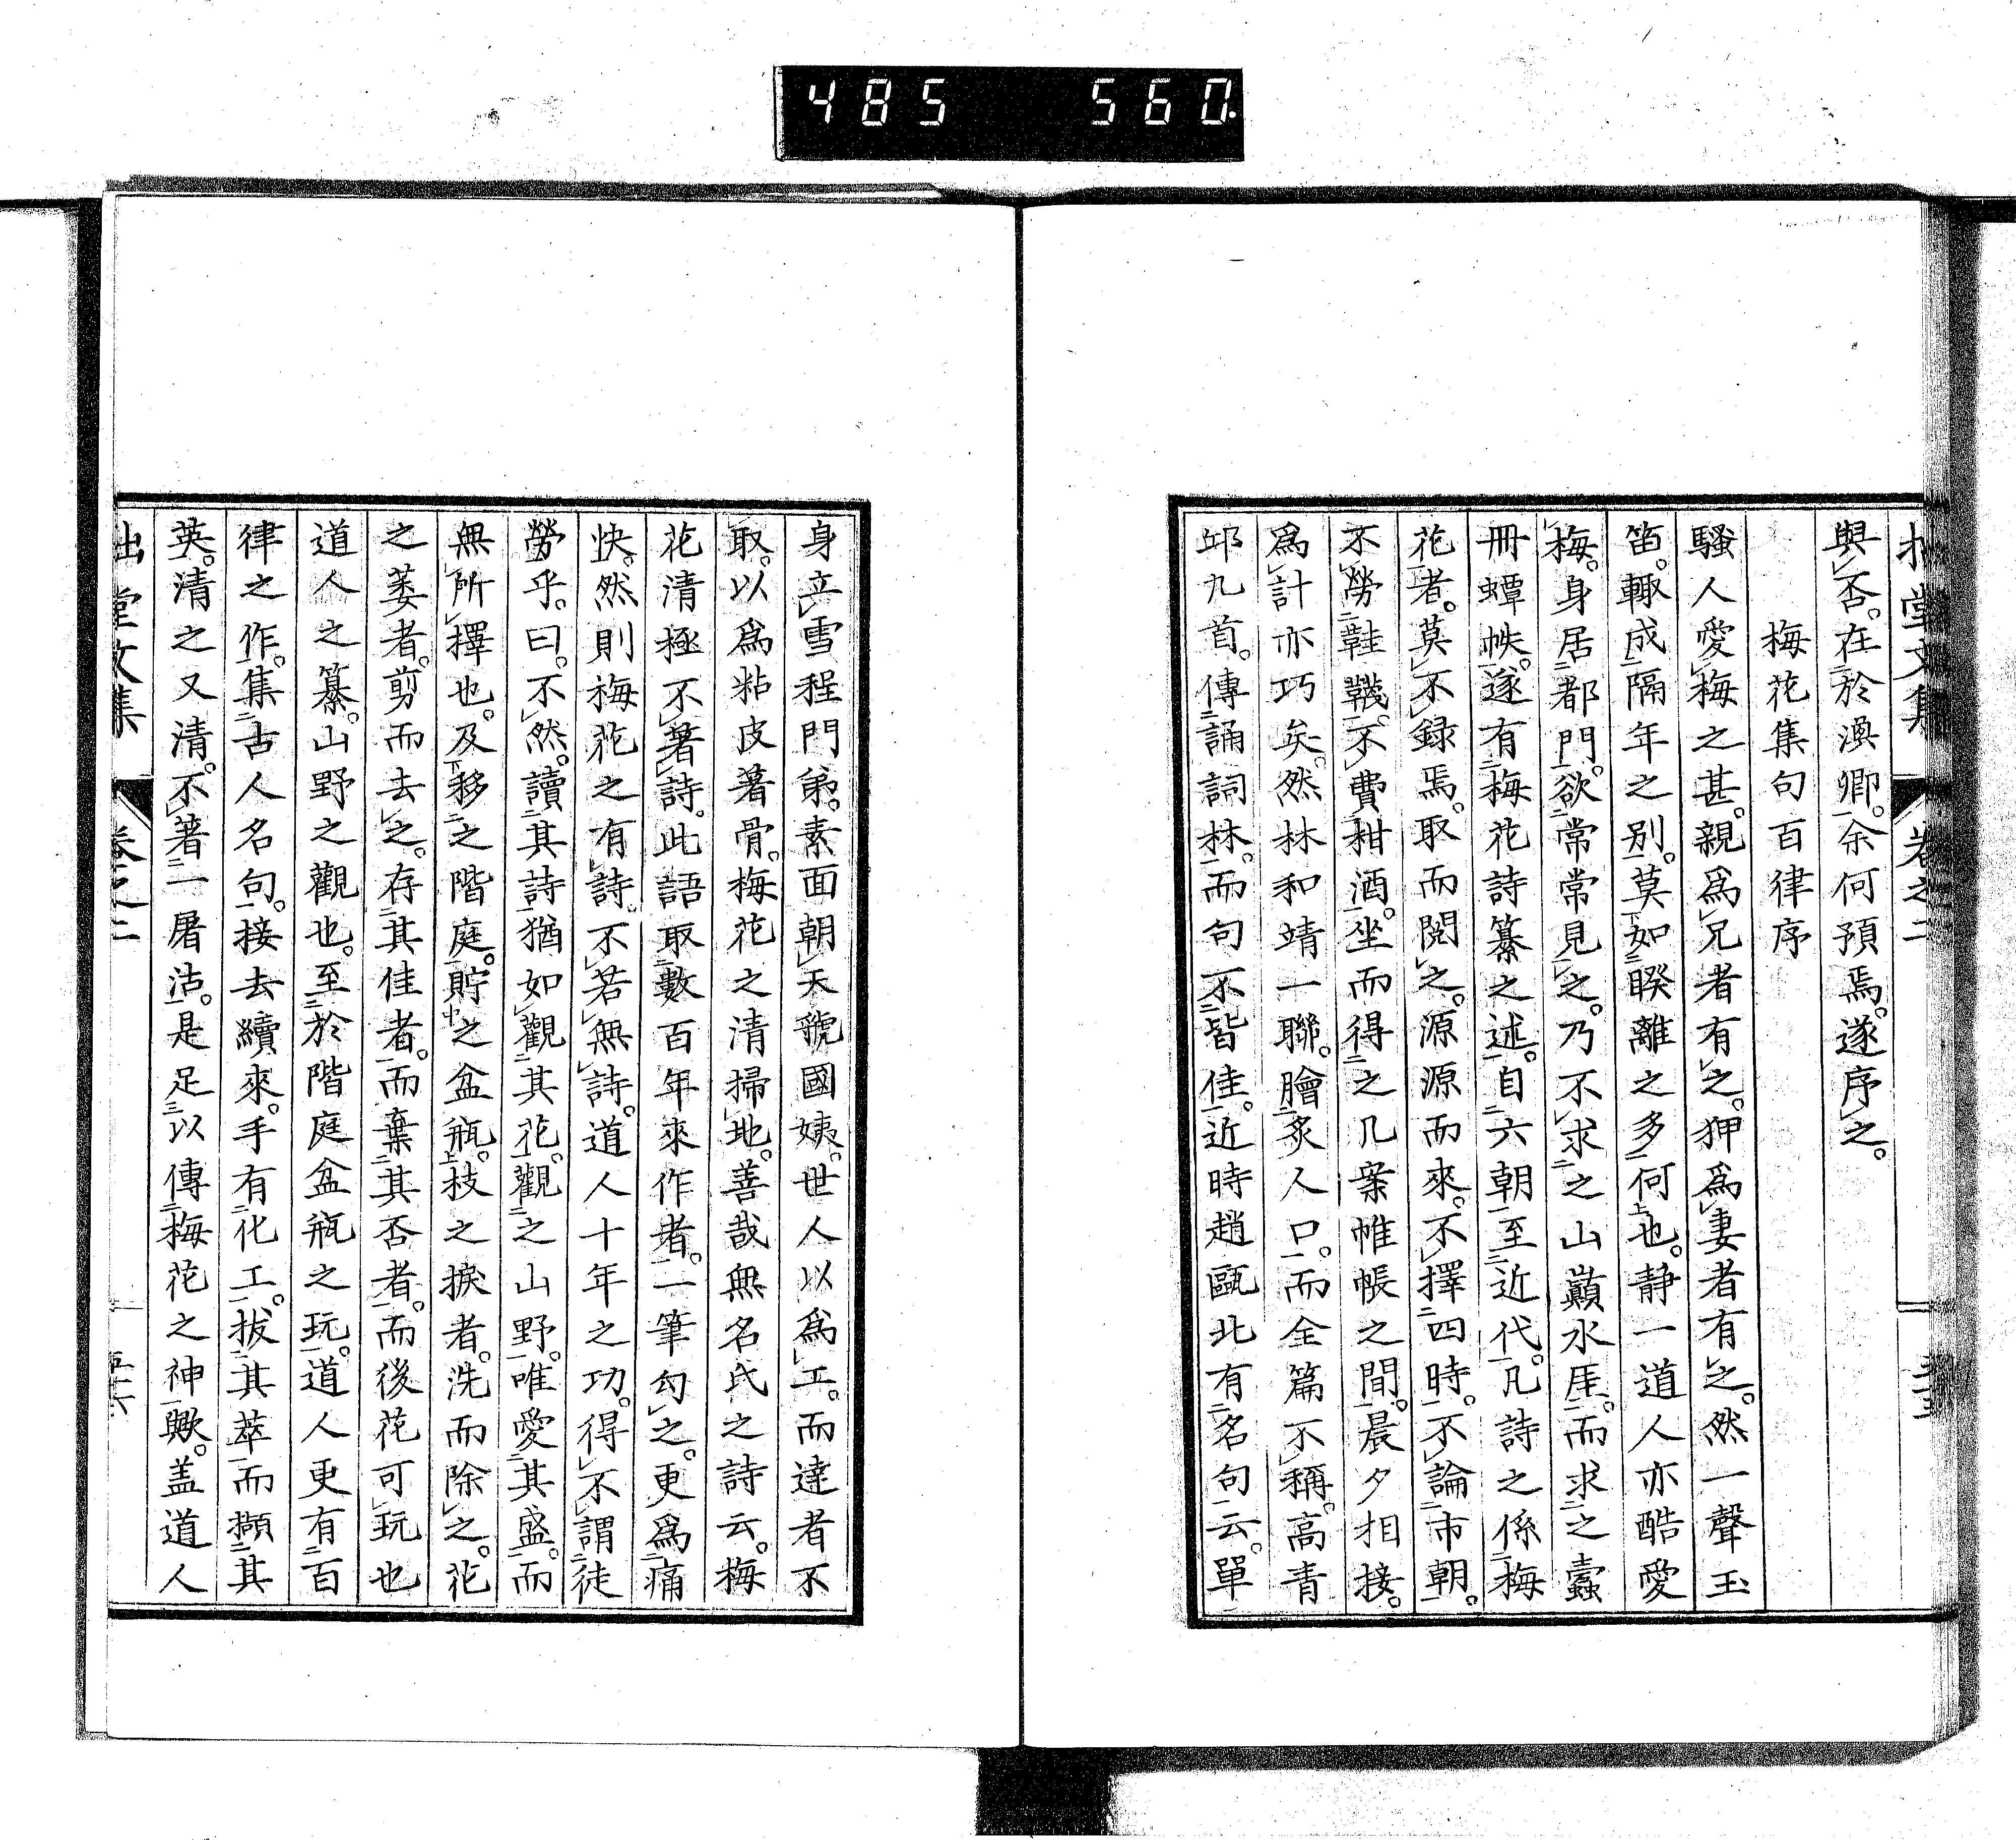 485 560.
拙堂文集 卷之二
與否。在於漁卿。余何預焉。遂序之。
梅花集句百律序
騷人愛梅之甚。親爲兄者有之。狎爲妻者有之。然一聲玉
笛。輙成隔年之别。莫如睽離之多何也。静一道人亦酷愛
梅。身居都門。欲常常見之。乃不求之山巓水厓。而求之蠧
冊蟫帙。遂有梅花詩纂之述。自六朝至近代。凡詩之係梅
花者。莫不録焉。取而閲之。源源而來。不擇四時。不論市朝。
不勞鞋韈。不費柑酒。坐而得之几案帷帳之間。晨夕相接。
爲計亦巧矣。然林和靖一聯。膾炙人口。而全篇不稱。高青
邱九首。傳誦詞林。而句不皆佳。近時趙甌北有名句云。單
身立雪程門弟。素面朝天虢國姨。世人以爲工。而達者不
取。以爲粘皮著骨。梅花之清掃地。善哉無名氏之詩云。梅
花清極不著詩。此語取數百年來作者。一筆勾之。更爲痛
快。然則梅花之有詩。不若無詩。道人十年之功。得不謂徒
勞乎。曰。不然。讀其詩猶如觀其花。觀之山野。唯愛其盛。而
無所擇也。及移之階庭。貯之盆瓶。枝之捩者。洗而除之。花
之萎者。剪而去之。存其佳者。而棄其否者。而後花可玩也
道人之纂。山野之觀也。至於階庭盆瓶之玩。道人更有百
律之作。集古人名句。接去續來。手有化工。拔其萃而擷其
英。清之又清。不著一屠沽。是足以傳梅花之神歟。盖道人
拙堂文集 卷之二